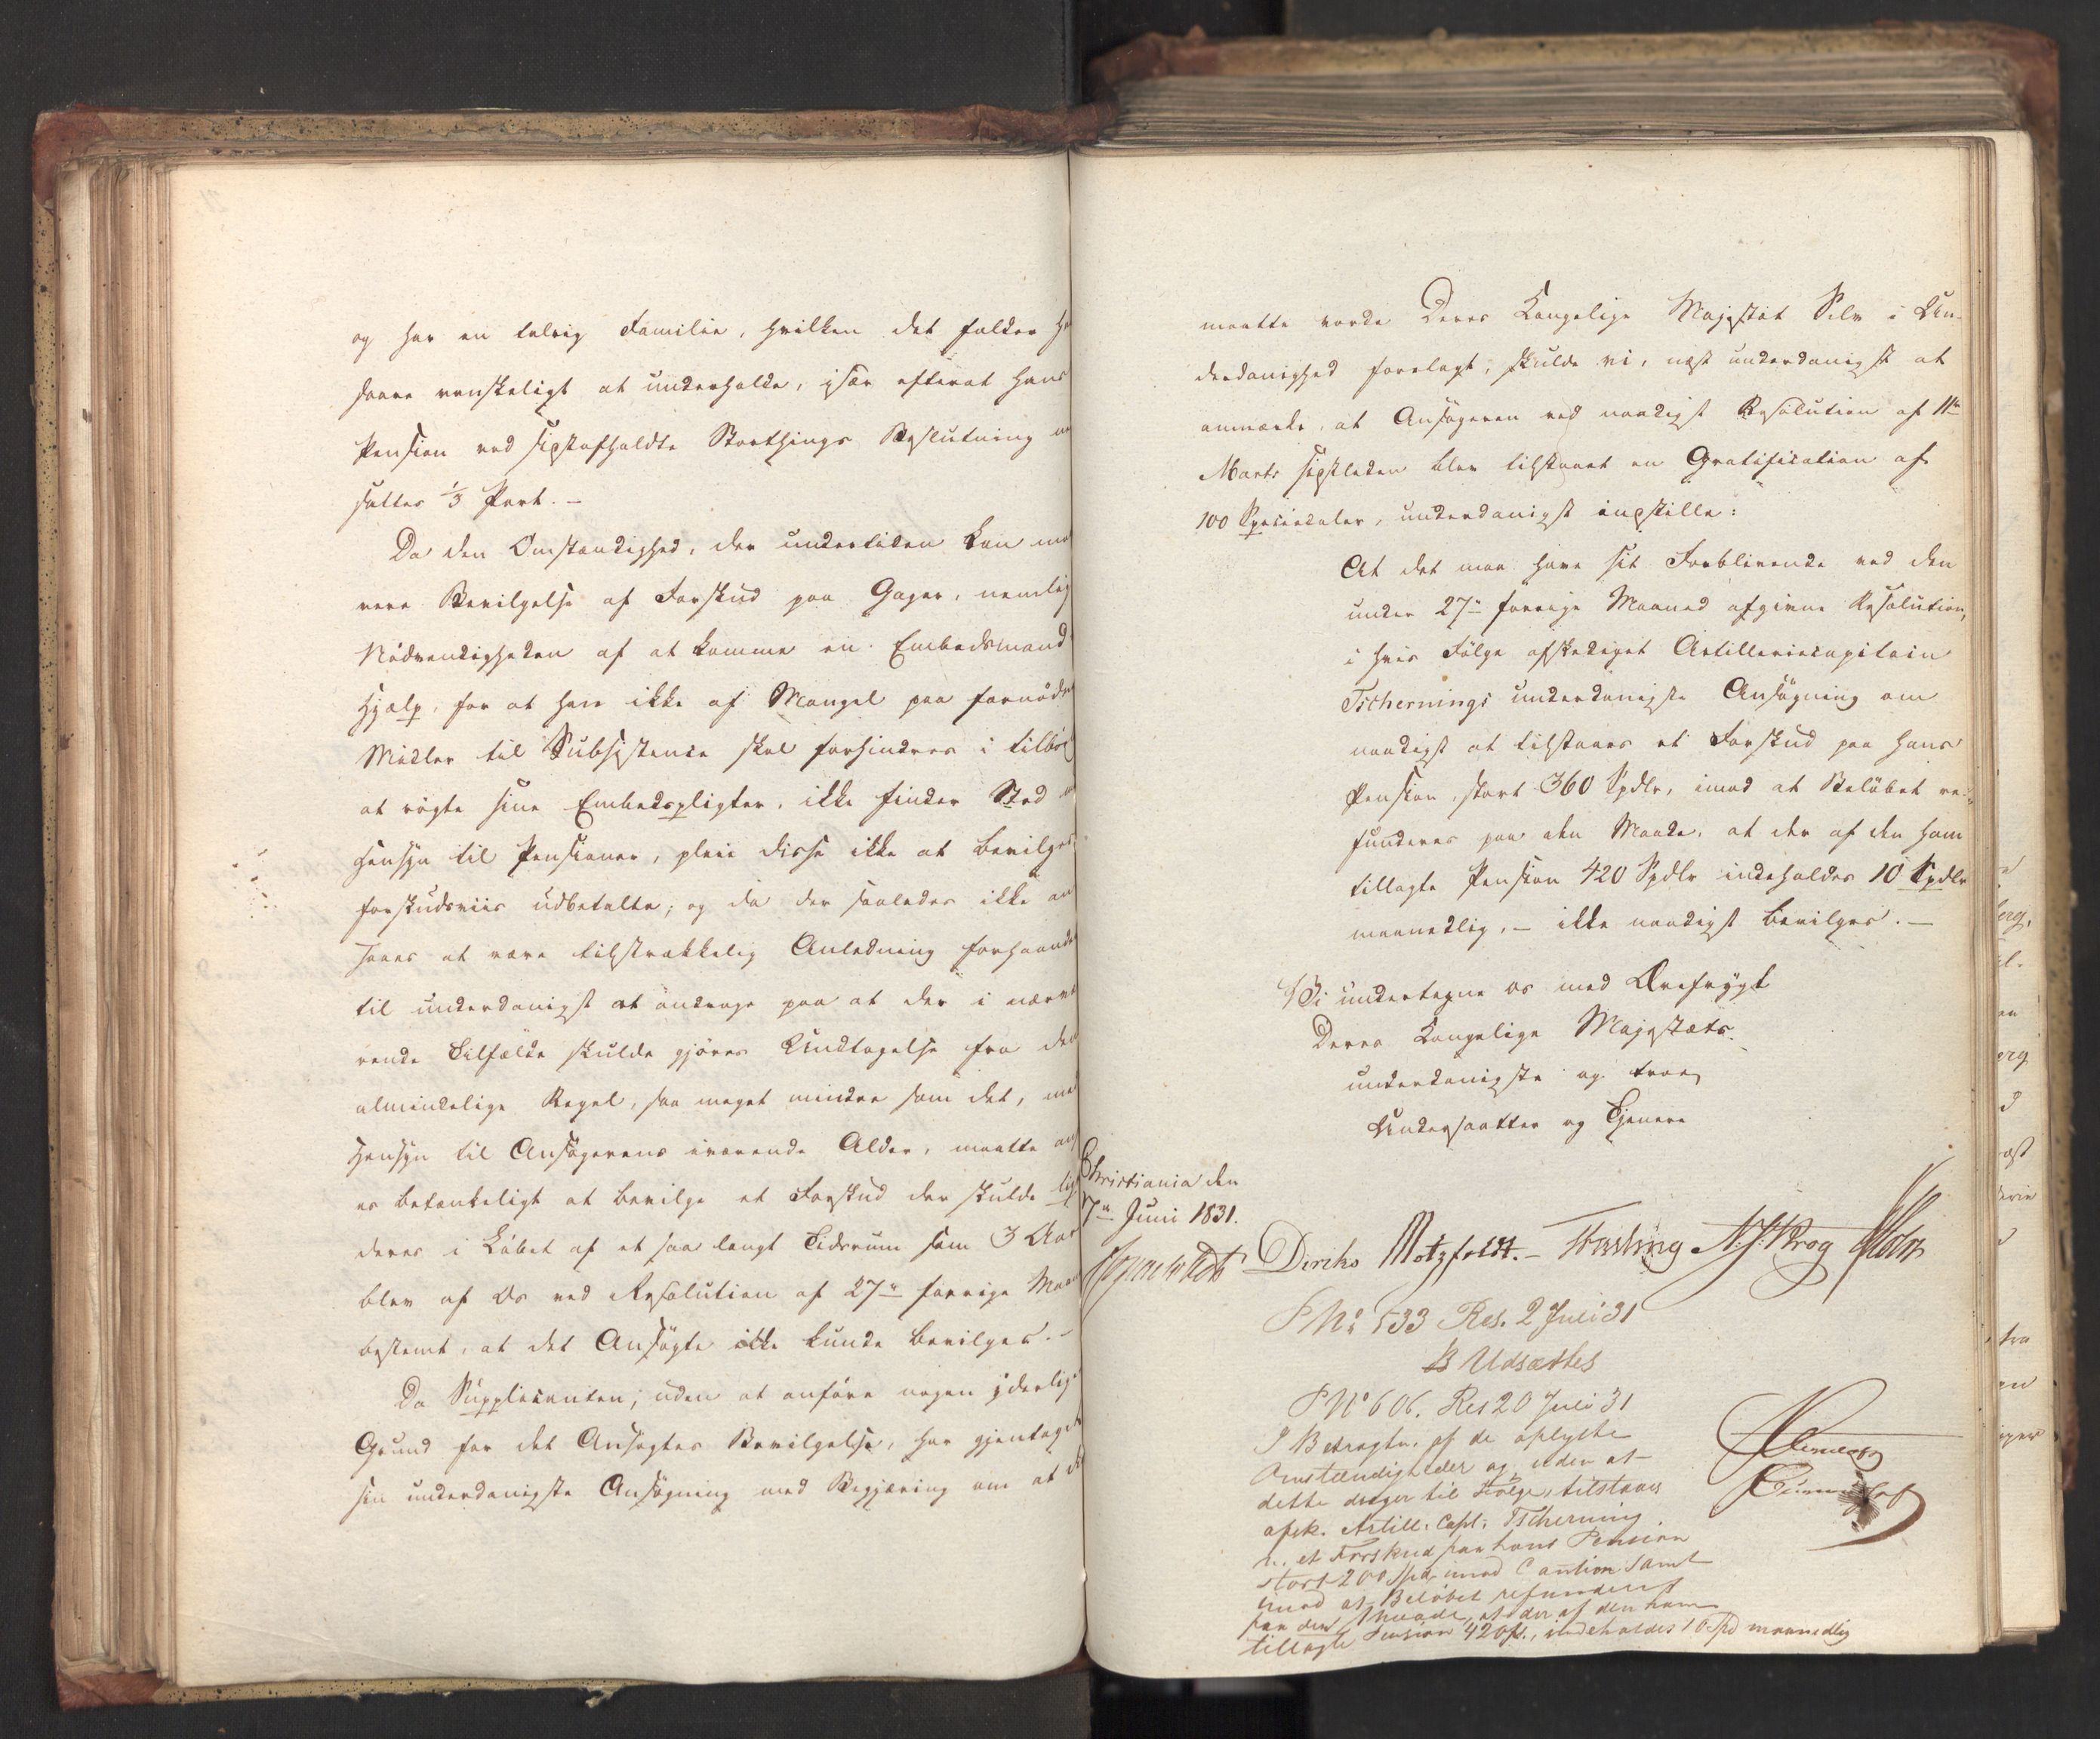 og har en talrig Familie, hvilken det falder h
saare vanskeligt at underholde, især efterat hans
Pension ved sidstafholdte Storthings Beslutning
sattes 1/3 Part. –
Da den Omstændighed, der undertiden kan mo
vere Bevilgelse af Forskud paa Gager, nemlig
Nödvendigheden af at komme en Embedsmand
Hjælp, for at han ikke af Mangel paa fornödne
Midler til Subsistence skal forhindres i tilbör
at rögte sine Embedspligter, ikke finder Sted
Hensyn til Pensioner, pleie disse ikke at bevilges
forskudsviis udbetalte; og da der saaledes ikke an
saaes at være tilstrækkelig Anledning forhaanden
til underdanigst at andrage paa at der i nærvæ
rende Tilfælde skulde gjöres Undtagelse fra den
almindelige Regel, saa meget mindre som det, med
Hensyn til Ansögerens værende Alder, maatte an
es betænkeligt at bevilge et Forskud der skulde liqvi
deres i Löbet af et saa langt Tidsrum som 3 Aar
blev af Os ved Resolution af 27de forrige Maan
bestemt, at det Ansögte ikke kunde bevilges. –
Da Supplicanten, uden at anföre nogen yderlige
Grund for det Ansögtes Bevilgelse, har gjentaget
sin underdanigste Ansögning med Begjæring om at d
maatte vorde Deres Kongelige Majestæt Selv i Un-
derdanighed forelagt, skulde vi, næst underdanigst at
anmærke, at Ansögeren ved naadigst Resolution af 11te
Marts sidstleden blev tilstaaet en Gratification af
100 Speciedaler, underdanigst indstille:
At det maa have sit Forblivende ved den
under 27de forrige Maaned afgivne Resolution,
i hvis Fölge afskediget Artilleriecapitain
Tschernings underdanigste Ansögning om
naadigst at tilstaaes et Forskud paa hans
Pension, stort 360 Spdlr, imod at Belöbet re-
funderes paa den Maade, at der af den ham
tillagte Pension 420 Spdlr indeholdes 10 Spdlr
maanedlig, – ikke naadigst bevilges. –
Vi undertegne os med Ærefrygt
Deres Kongelige Majestæts
underdanigste og troe
Undersaatter og Tjenere
Christiania den
7de Juni 1831.
Diriks Motzfeldt. – Fasting N.J. Krog Holst
P No 533 Res. 2 Juli 31
B Udsættes
P No 606. Res 20 Juli 31
I Betragtn. af de oplyste
Omstændigheder og uden at
dette drages til Følge, tilstaaes
afsk. Artill. Capt. Tscherning
n. et Forskud paa hans Pension
stort 200 Spd. imod Caution samt
imod at Beløbet refunderes
paa den Maade, at der af den ham
tillagte Pension 420 Spd., indeholdes 10 Spd maanedlig